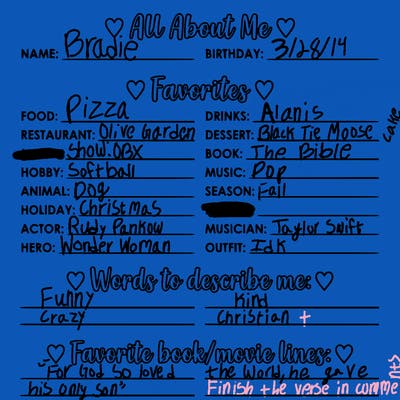 ♡ All About Me ♡
NAME: Bradie BIRTHDAY: 3/28/14
♡ Favorites ♡
FOOD: Pizza DRINKS: Alanis
RESTAURANT: Olive Garden DESSERT: Black Tie Moose cake
Show: OBX BOOK: The Bible
HOBBY: Softball MUSIC: Pop
ANIMAL: Dog SEASON: Fall
HOLIDAY: Christmas
ACTOR: Rudy Pankow MUSICIAN: Taylor Swift
HERO: Wonder Woman OUTFIT: Idk
♡ Words to describe me: ♡
Funny Kind
Crazy Christian +
♡ Favorite book/movie lines: ♡
"For God so loved the World, he gave
his only son" Finish the verse in comments